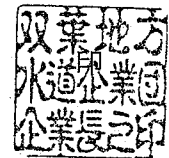 双葉地方
水道企業団
企業長之印